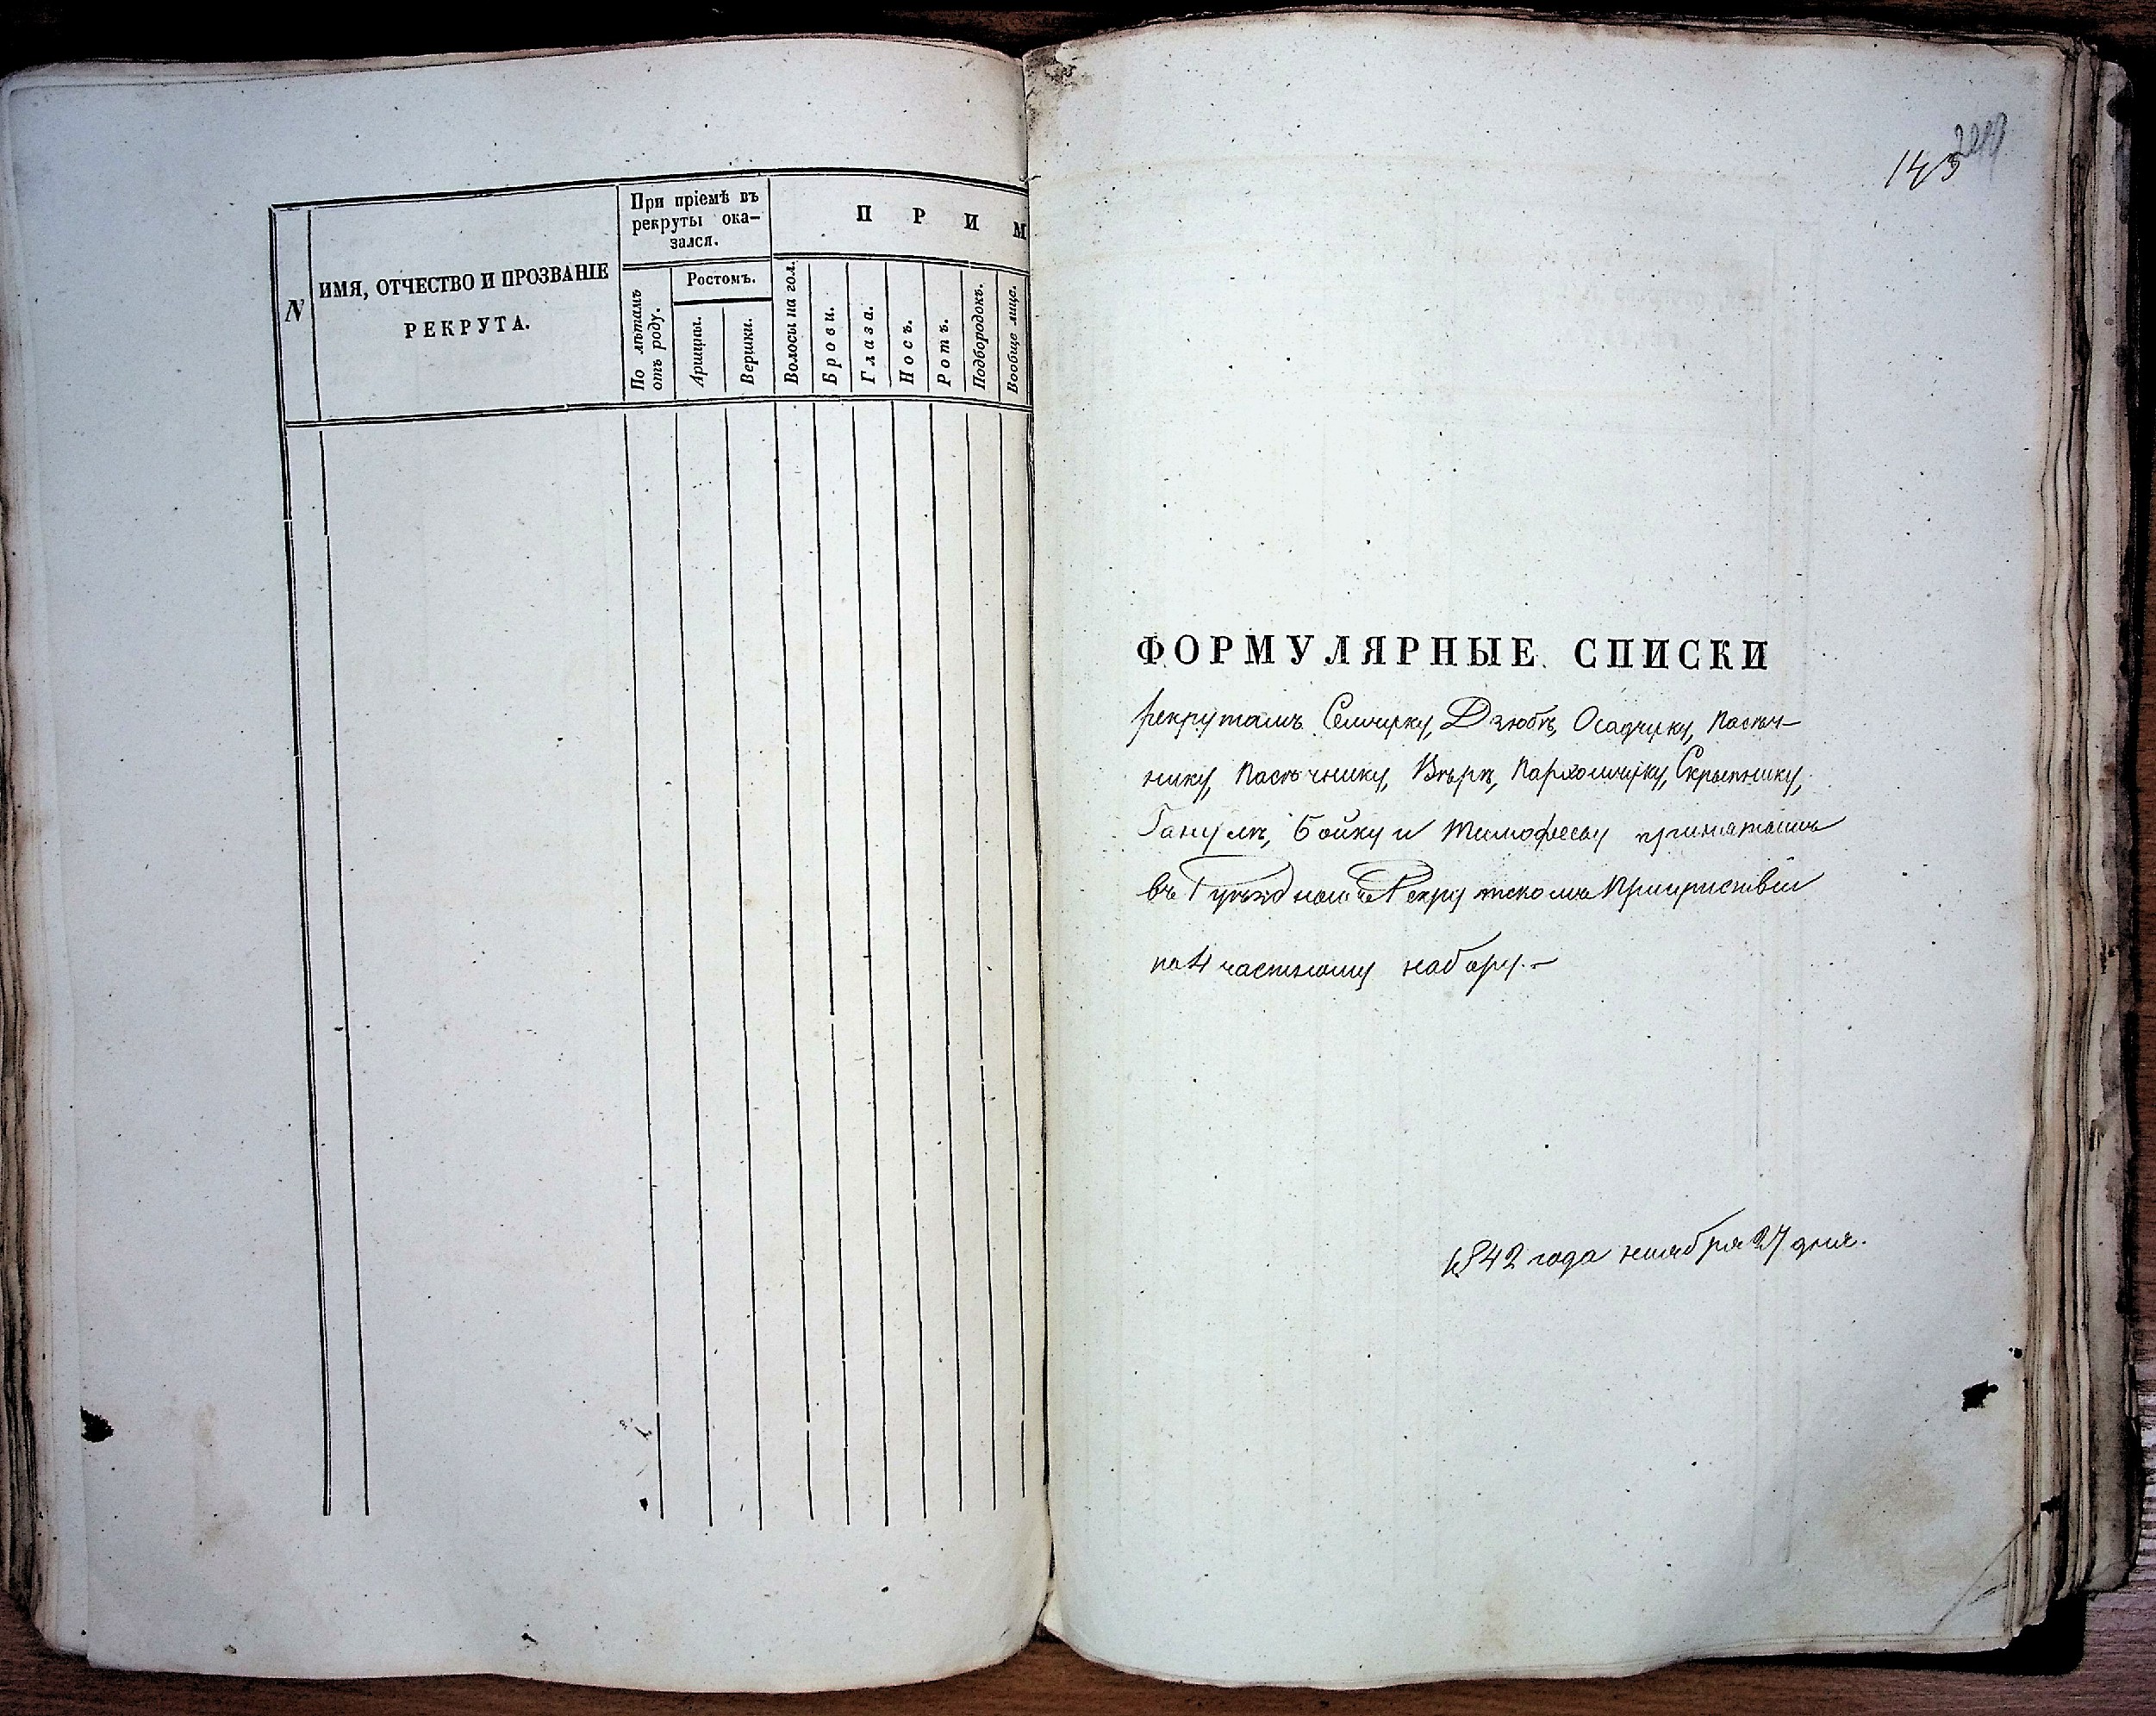 N
ИМЯ, ОТЧЕСТВО И ПРОЗВАНІЕ
РЕКРУТА.
При пріемѣ въ
рекруты ока-
зался.
По лѣтамъ
отъ роду.
Ростомъ.
Аршины.
Вершки.
П Р И М
Волосы на гол.
Брови.
Глаза.
Носъ.
Ротъ.
Подбородокъ.
Вообще лице.
143
ФОРМУЛЯРНЫЕ СПИСКИ
рекрутамъ Дзюбѣ, Осадчуку, Пасѣч-
нику, Пасѣчнику, Пархомчуку, Скрыпнику,
Бойку и Тимофееву принятымъ
въ Рекрутскомъ Присутствіи
по 4 частному набору.-
1842 года ноября 27 дня.